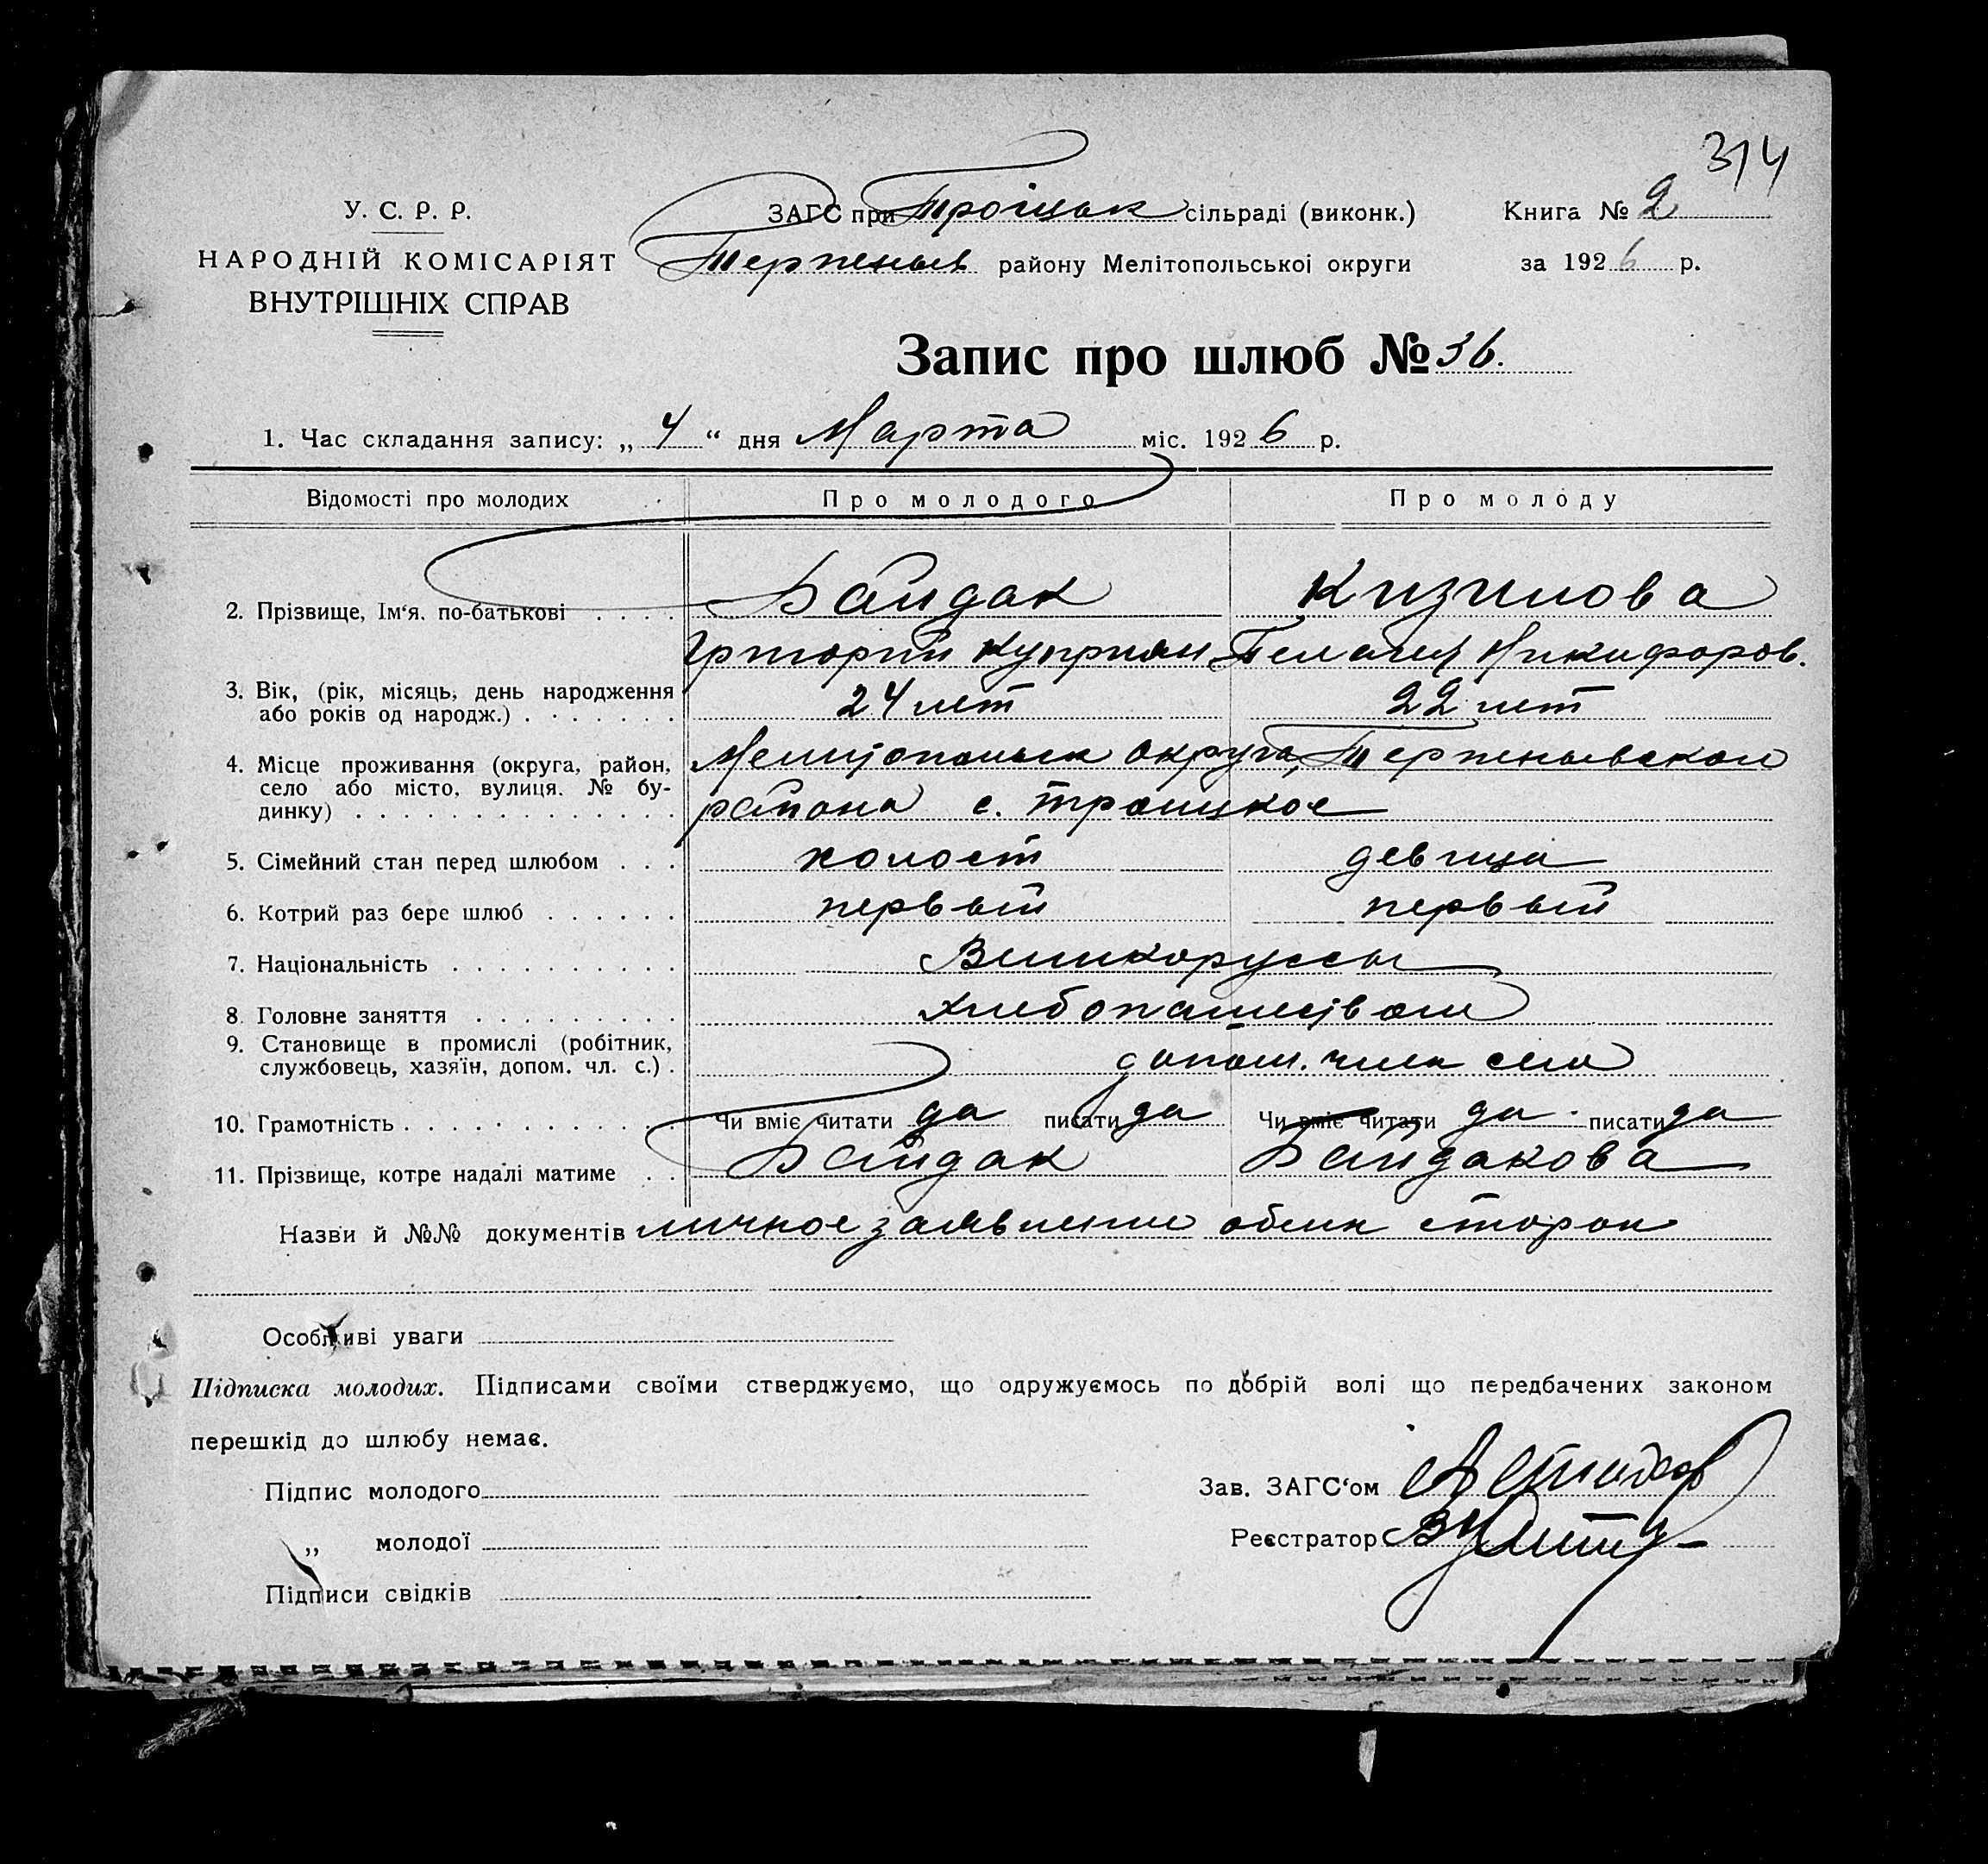 314
У. С. Р. Р.
НАРОДНІЙ КОМІСАРІЯТ
ВНУТРІШНІХ СПРАВ
ЗАГС при Троїцьк сільраді (виконк.)
Терпеньев району Мелітопольської округи
Книга № 2
за 1926 р.
Запис про шлюб № 36.
1. Час складання запису: „ 4 “ дня Марта міс. 1926 р.
Відомості про молодих Про молодого Про молоду
2. Прізвище, Ім‘я, по-батькові . . . . Байдак Кизилова
Григорий Куприян Пелагия Никифоров.
3. Вік, (рік, місяць, день народження
або років од народж.) . . . . . . . 24 лет 22 лет
4. Місце проживання (округа, район,
село або місто, вулиця, № бу-
динку) . . . . . . . . . . . . . .
Мелитопольск округа, Терпеньевского
района с. Троицкое
5. Сімейний стан перед шлюбом . . . холост девица
6. Котрий раз бере шлюб . . . . . . первый первый
7. Національність . . . . . . . . . . Великоруссы
8. Головне заняття . . . . . . . . . Хлебопашеством
9. Становище в промислі (робітник,
службовець, хазяїн, допом. чл. с.) . допом. член сем
10. Грамотність . . . . . . . . . . . . Чи вміє читати да писати да Чи вміє читати да писати да
11. Прізвище, котре надалі матиме . . Байдак Байдакова
Назви й №№ документів личное заявление обеих сторон
Особливі уваги
Підписка молодих. Підписами своїми стверджуємо, що одружуємось по добрій волі що передбачених законом
перешкід до шлюбу немає.
Підпис молодого
„ молодої
Підписи свідків
Зав. ЗАГС‘ом
Реєстратор